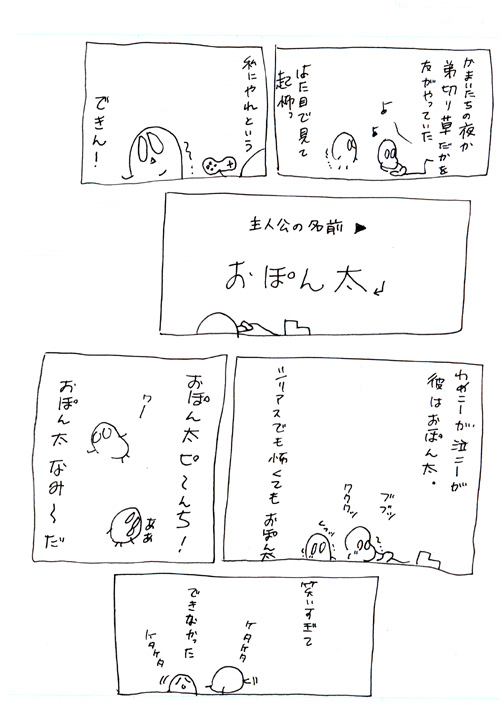 かまいたちの夜か
弟切り草だかを
友がやっていた
はた目で見て
起怖っ
私にやれという
できん!
主人公の名前▶
おぽん太
わめこーが泣こーが
彼はおぽん太。
ブブッ
ワククッ
くっッ
シリアスでも怖くてもおぽん太
おぽん太ピ〜んち!
ワー
おぽん太なみ〜だ
ああ
笑いすぎて
できなかった
ケタケタ
ケタケタ